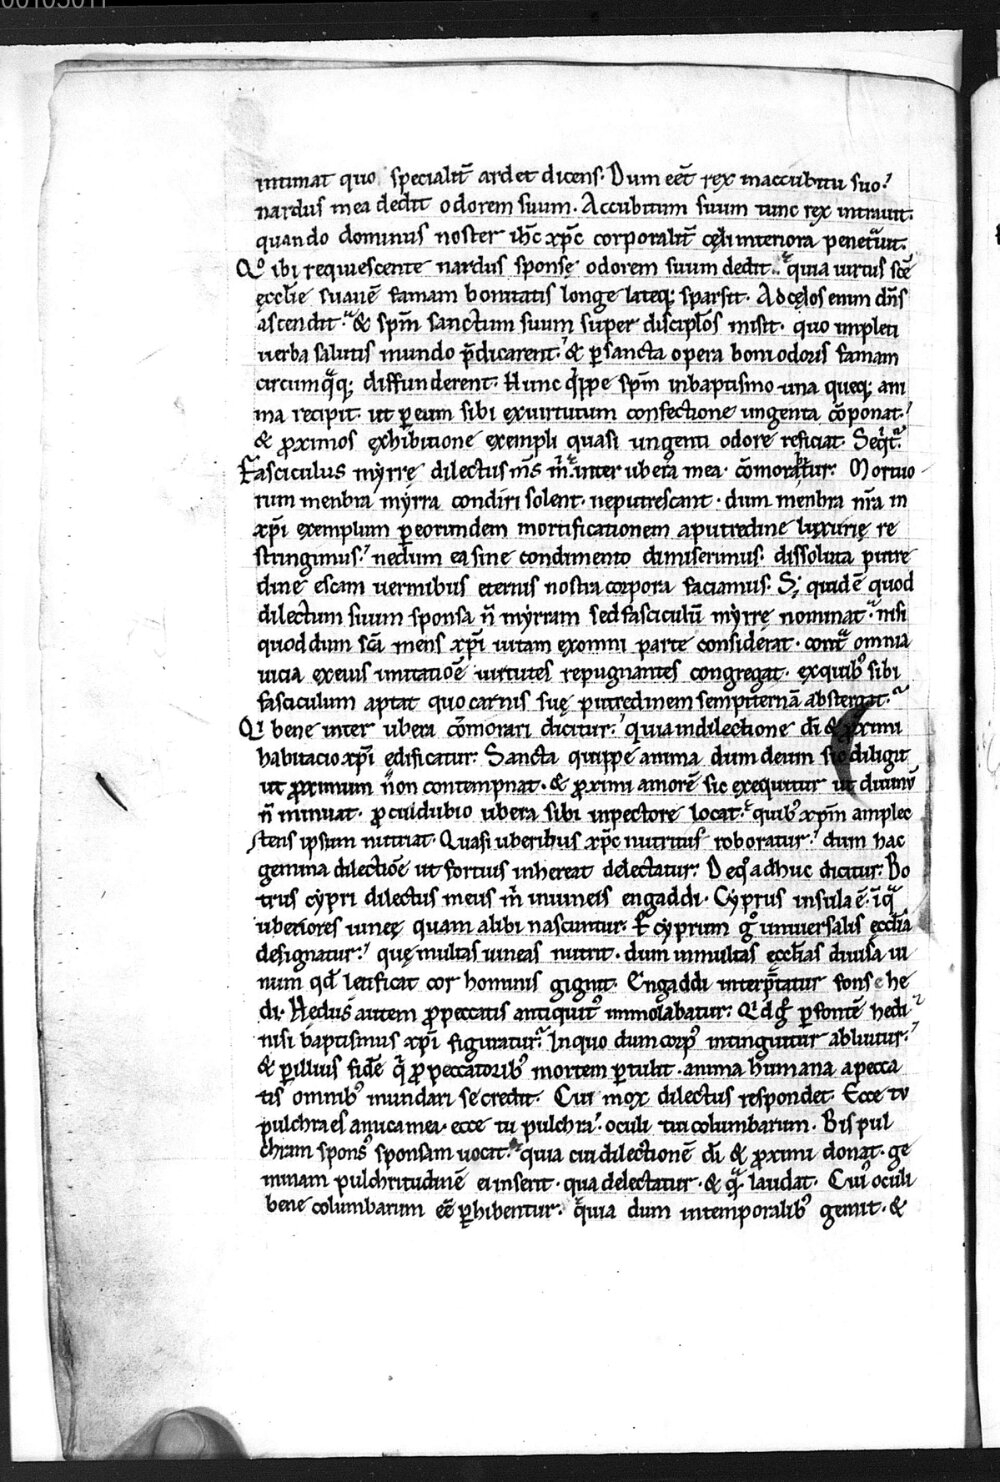 00103011
intimat quo specialit̄ ardet dicens. Dum eēt rex inaccubitu suo.
nardus mea dedit odorem suum. Accubitum suum tunc rex intrauit.
quando dominus noster ih̄c xp̄c corporalit̄ cęli interiora penetᵃuit.
Qͦ ibi requiescente nardus sponsę odorem suum dedit. quia uirtus scē
ęccl̄ie suauē famam bonitatis longe lateq; sparsit. Ad cęlos enim dn̄s
ascendit. & sp̄m sanctum suum super discipl̄os misit. quo impleti
uerba salutis mundo p̄dicarent. & ꝑ sancta opera boni odoris famam
circumqᵃq; diffunderent. Hunc qͥppe sp̄m inbaptismo una queq; ani
ma recipit. ut ꝑ eum sibi exuirtutum confectione ungenta cōponat.
& ꝓximos exhibitione exempli quasi ungenti odore reficiat. Seqͥt᷑.
Fasciculus myrrę dilectus m̄s m̄. inter ubera mea cōmorabit᷑ur. Mortuo
rum menbra myrra condiri solent. neputrescant. dum menbra nr̄a in
xp̄i exemplum ꝑ eorundem mortificationem aputredine luxurię re
stringimus. nedum ea sine condimento dimiserimus. dissoluta putre
dine escam uermibus eternis nostra corpora faciamus. S; quid ē quod
dilectum suum sponsa n̄ myrram sed fasciculū myrrę nominat. nisi
quod dum scā mens xp̄i uitam exomni parte considerat. contᵃ omnia
uicia exeius imitatiōe uirtutes repugnantes congregat. exquibꝰ sibi
fasciculum aptat quo carnis suę putredinem sempiternā abstergat.
Qͥ bene inter ubera cōmorari dicitur. quia indilectione dī & ꝓximi
habitacio xp̄i edificatur. Sancta quippe anima dum deum sic diligit
ut ꝓximum n̄on contempnat. & ꝓximi amorē sic exequitur ut diuinū
n̄ minuat. ꝓculdubio ubera sibi inpectore locat. quibꝰ xp̄m amplec
stens ipsum nutriat. Quasi uberibus xp̄c nutritus roboratur. dum hac
gemina dilectiōe ut fortius inhereat delectatur. De qͦ adhuc dicitur. Bo
trus cypri dilectus meus m̄ inuineis engaddi. Cyprus insula ē. ī qᵃ
uberiores uineę quam alibi nascuntur. Ꝑ cyprum gͦ uniuersalis ęccl̄ia
designatur. quę multas uineas nutrit. dum inmultas ęccl̄ias diuisa ui
num qd̄ letificat cor hominis gignit. Engaddi interp̄tatur fons he
di. Hedus autem ꝓ peccatis antiquitꝰ immolabatur. Qͥd gͦ ꝑ fontē hedi
nisi baptismus xp̄i figuratur. In quo dum corpꝰ intinguitur abluitur.
& ꝑ illius fidē qͥ ꝓ peccatoribꝰ mortem ꝑtulit. anima humana apecca
tis omnibꝰ mundari se credit. Cui mox dilectus respondet. Ecce tu
pulchra es amica mea. ecce tu pulchra. oculi tui columbarum. Bis pul
chram sponsꝰ sponsam uocat. quia cui dilectionē dī & ꝓximi donat. ge
minam pulchritudinē ei inserit. qua delectatur. & qᵃ laudat. Cuiꝰ oculi
bene columbarum eē ꝑhibentur. quia dum intemporalibꝰ gemit. &